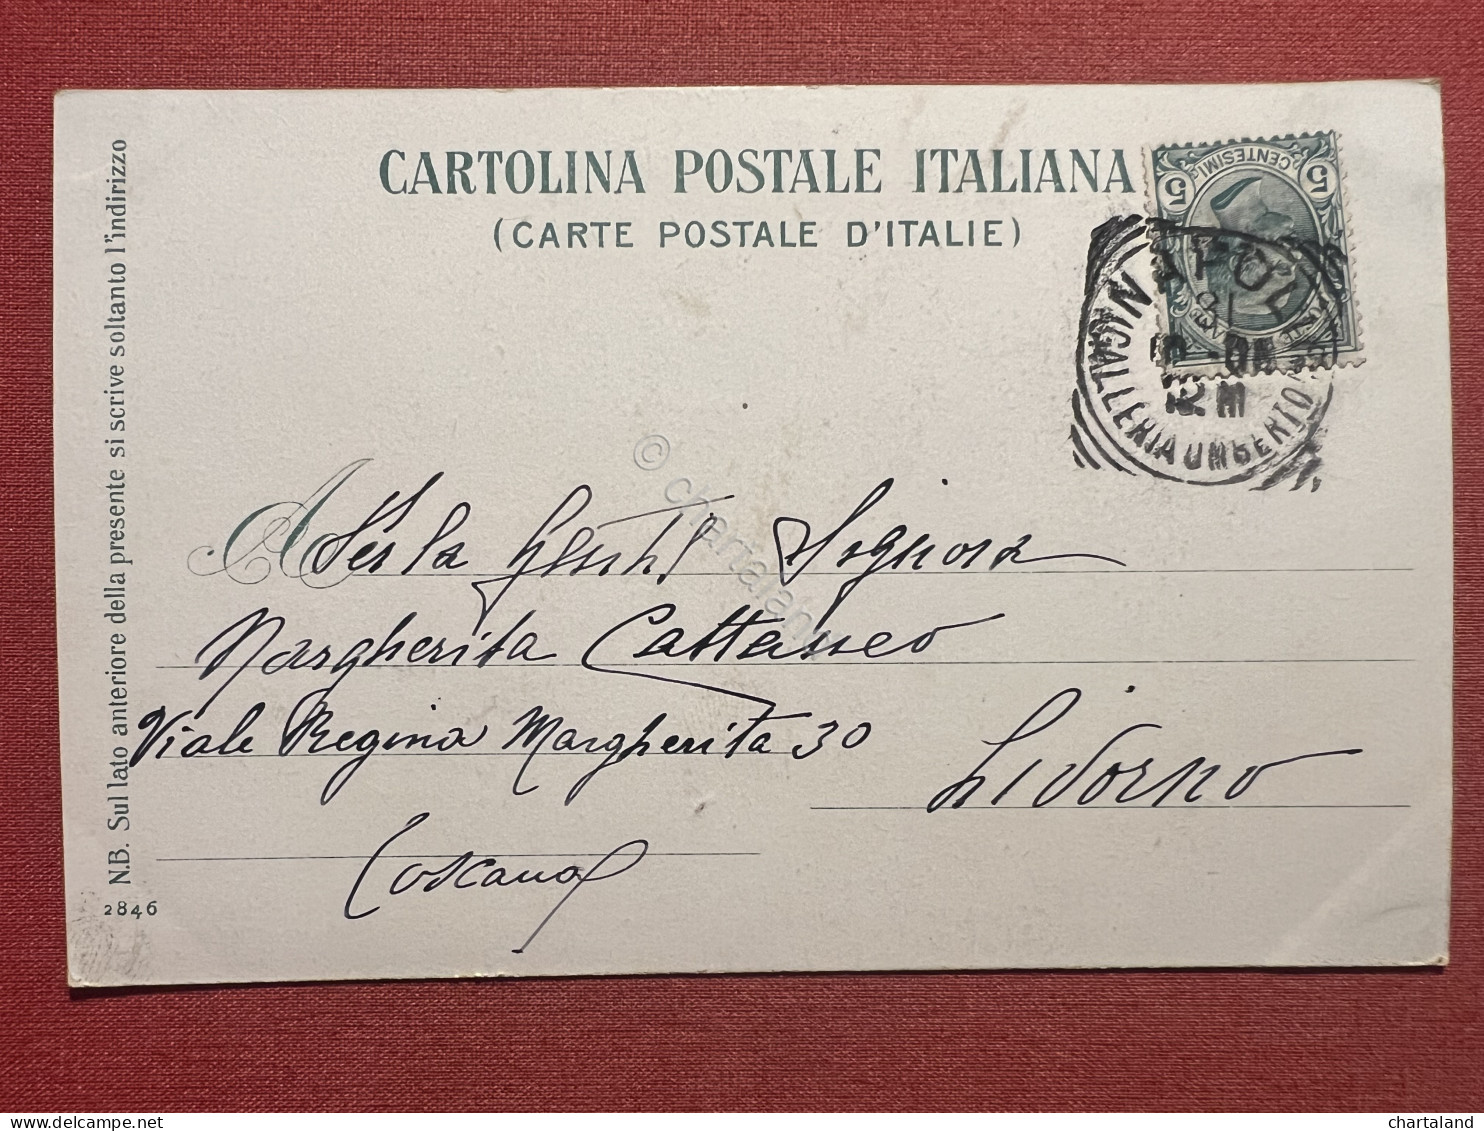 CARTOLINA POSTALE ITALIANA
(CARTE POSTALE D'ITALIE)
CENTESIMI
5 5
NAPOLI
GALLERIA UMBERTO
N.B. Sul lato anteriore della presente si scrive soltanto l'indirizzo
2846
© chartaland
A Gentil Signora
Margherita Cattaneo
Viale Regina Margherita 30
Livorno
Toscana
chartaland